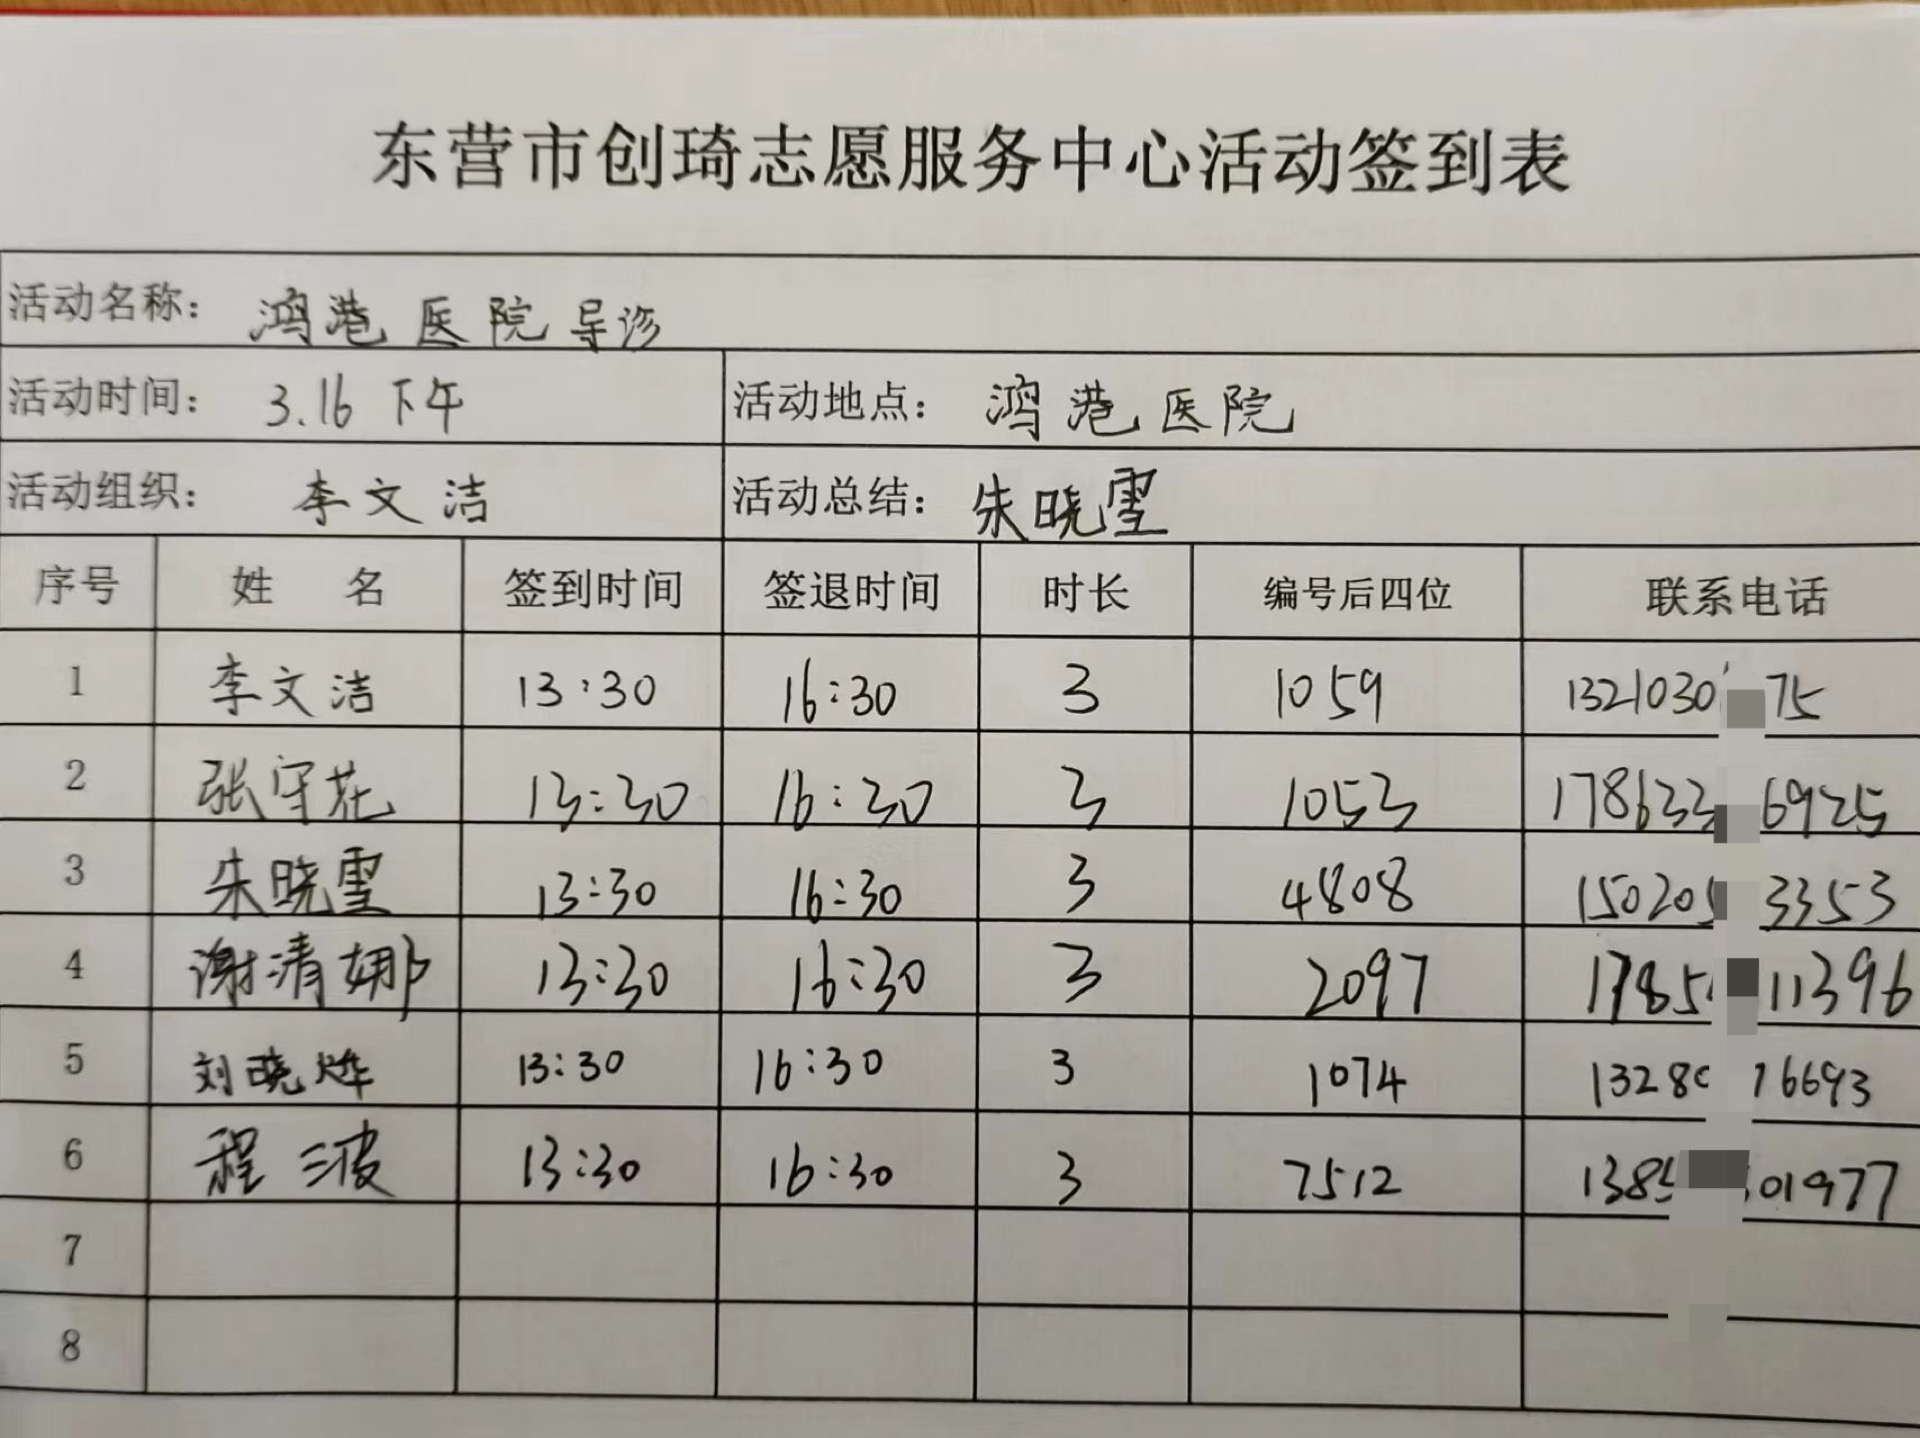 东营市创琦志愿服务中心活动签到表
活动名称： 鸿港医院导诊
活动时间： 3.16 下午 活动地点： 鸿港医院
活动组织： 李文洁 活动总结： 朱晓雪
序号 姓 名 签到时间 签退时间 时长 编号后四位 联系电话
1 李文洁 13:30 16:30 3 1059 1321030 75
2 张守花 13:30 16:30 3 1053 178633 6925
3 朱晓雪 13:30 16:30 3 4808 15020 3353
4 谢清娜 13:30 16:30 3 2097 1785 11396
5 刘晓烨 13:30 16:30 3 1074 1328 6693
6 程 13:30 16:30 3 7512 138 01977
7
8